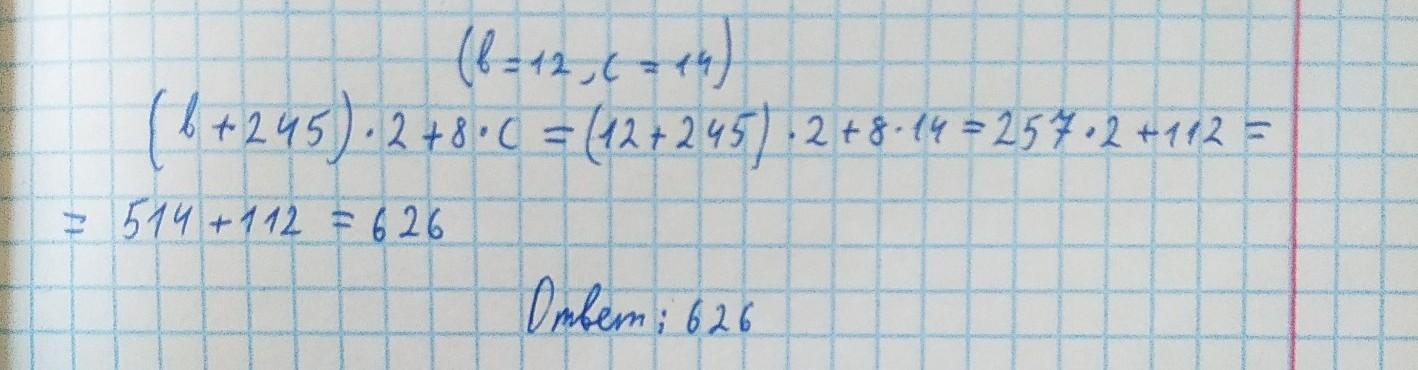 (b=12, c=14)
(b+245)·2+8·c=(12+245)·2+8·14=257·2+112=
=514+112=626
Ответ: 626